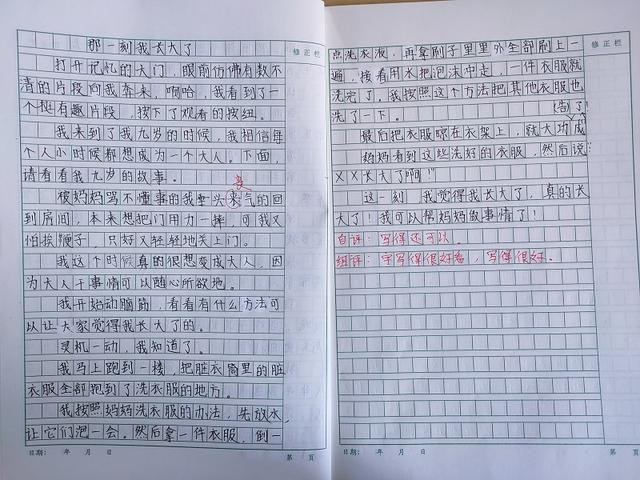 那一刻我长大了
修正栏
打开记忆的大门，眼前仿佛有数不
清的片段向我奔来，啊哈，我看到了一
个挺有趣片段，按下了观看的按钮。
我来到了我九岁的时候，我相信每
个人小时候都想成为一个大人。下面，
请看看我九岁的故事。
丧
被妈妈骂不懂事的我垂头丧气的回
到房间，本来想把门用力一摔，可我又
怕挨鞭子，只好又轻轻地关上门。
我这个时候真的很想变成大人，因
为大人干事情可以随心所欲地。
我开始动脑筋，看看有什么方法可
以让大家觉得我长大了的。
灵机一动，我知道了。
我马上跑到一楼，把脏衣篓里的脏
衣服全部抱到了洗衣服的地方。
我按照妈妈洗衣服的办法，先放水，
让它们泡一会。然后拿一件衣服，倒一
日期： 年 月 日
第 页
修正栏
点洗衣液，再拿刷子里里外全部刷上一
遍，接着用水把泡沫冲走，一件衣服就
洗完了，我按照这个方法把其他衣服也
洗了一下。
告了！
最后把衣服晾在衣架上，就大功成
妈妈看到这些洗好的衣服，然后说：
XX长大了啊！"
这一刻，我觉得我长大了，真的长
大了！我可以帮妈妈做事情了！
自评：写得还可以。
组评：字写得很好看，写得很好。
日期： 年 月 日
第 页